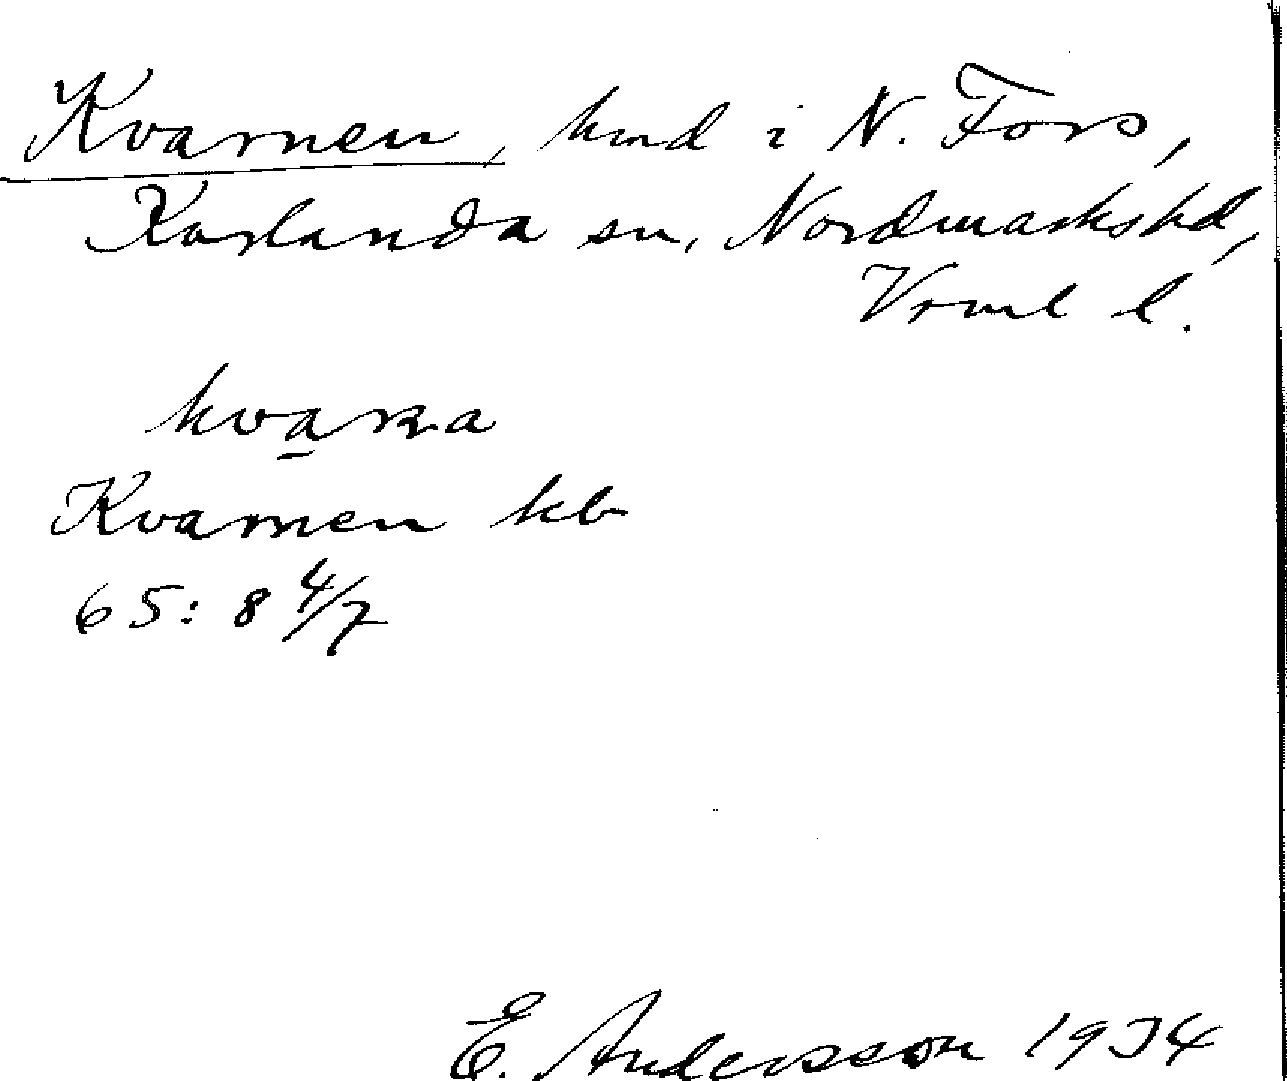 Kvarnen, hmd i N. Fors,
Karlanda sn, Nordmarks hd,
Vrml l.
kvaṟṉa
Kvarnen kb
65: 8 4/7
E. Andersson 1934